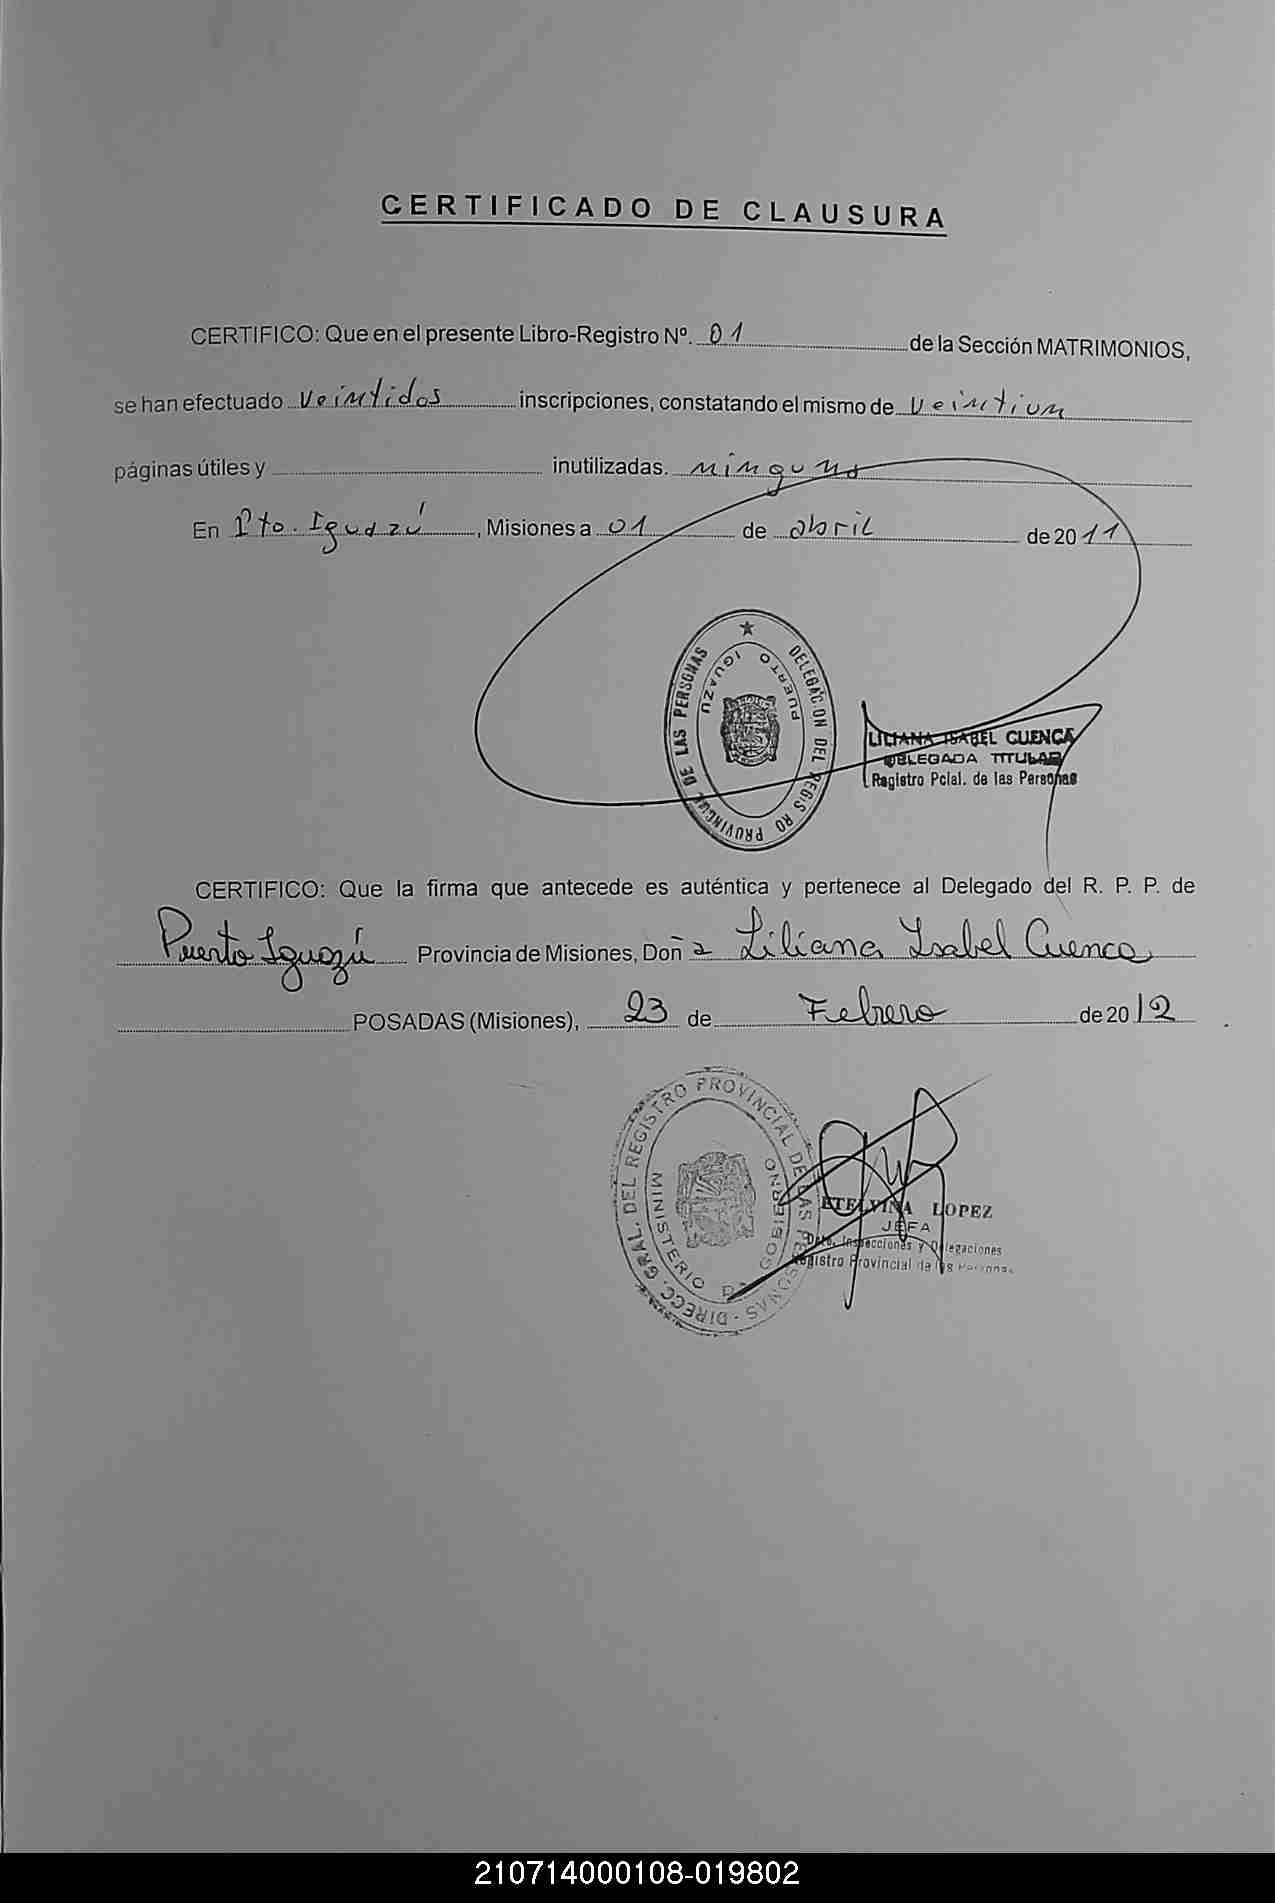 CERTIFICADO DE CLAUSURA
CERTIFICO: Que en el presente Libro-Registro Nº. 01 de la Sección MATRIMONIOS,
se han efectuado veintidos inscripciones, constatando el mismo de veintiun
páginas útiles y inutilizadas. ninguna
En Pto. Iguazú, Misiones a 01 de abril de 2011
DELEGACION DEL REGISTRO PROVINCIAL DE LAS PERSONAS
PUERTO IGUAZU
LILIANA ISABEL CUENCA
DELEGADA TITULAR
Registro Pcial. de las Personas
CERTIFICO: Que la firma que antecede es auténtica y pertenece al Delegado del R. P. P. de
Puerto Iguazú Provincia de Misiones, Doña Liliana Isabel Cuenca
POSADAS (Misiones), 23 de Febrero de 2012
DIRECC. GRAL. DEL REGISTRO PROVINCIAL DE LAS PERSONAS -
MINISTERIO DE GOBIERNO
ETELVINA LOPEZ
JEFA
Dpto. Inspecciones y Delegaciones
Registro Provincial de las Personas
210714000108-019802